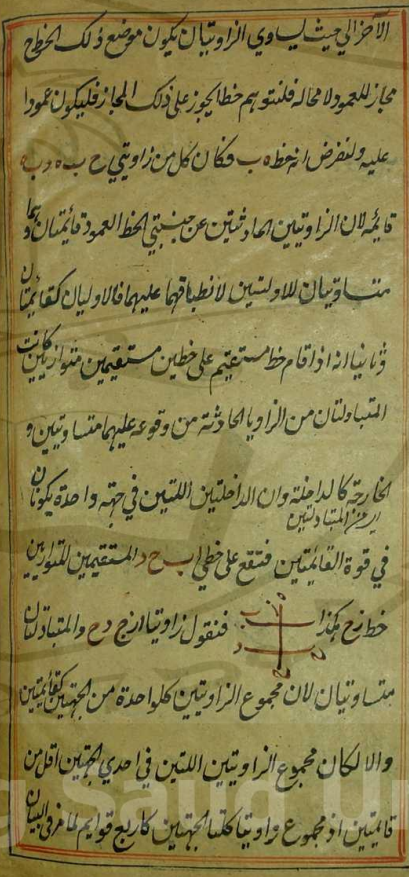 الآخر الي حيث يساوي الزاويتان يكون موضع ذلك الخط ح
مجاز للعمود لا محالة فلنتوهم خطا يجوز علي ذلك المجاز فليكون عمودا
عليه ولنفرض انه خط ه ب فكان كل من زاويتي ح ب ه د ب ه
قائمه لان الزاويتين الحادثتين عن جنبتي الخط العمود قائمتان وهما
متساويتان للاوليين لانطباقهما عليهما فالاوليان كقائمتان
وثانيا انه اذا قام خط مستقيم علي خطين مستقيمين متوازيين كانت
المتبادلتان من الزوايا الحادثة من وقوعه عليهما متساويتين و
الخارجة كالداخلة وان الداخلتين اللتين في جهة واحدة يكونان
اي من المتبادلتين
في قوة القائمتين فتقع علي خطي اب ح د المستقيمين المتوازيين
خط زح هكذا ا ب د فنقول زاويتا ازح دح والمتبادلتان
متساويتان لان مجموع الزاويتين كلواحدة من الجهتين كقائمتين
والا لكان مجموع الزاويتين اللتين في احدي الجهتين اقل من
قائمتين اذ مجموع زاويتا كلتا الجهتين كاربع قوايم لما مر في البيان
King Saud Un